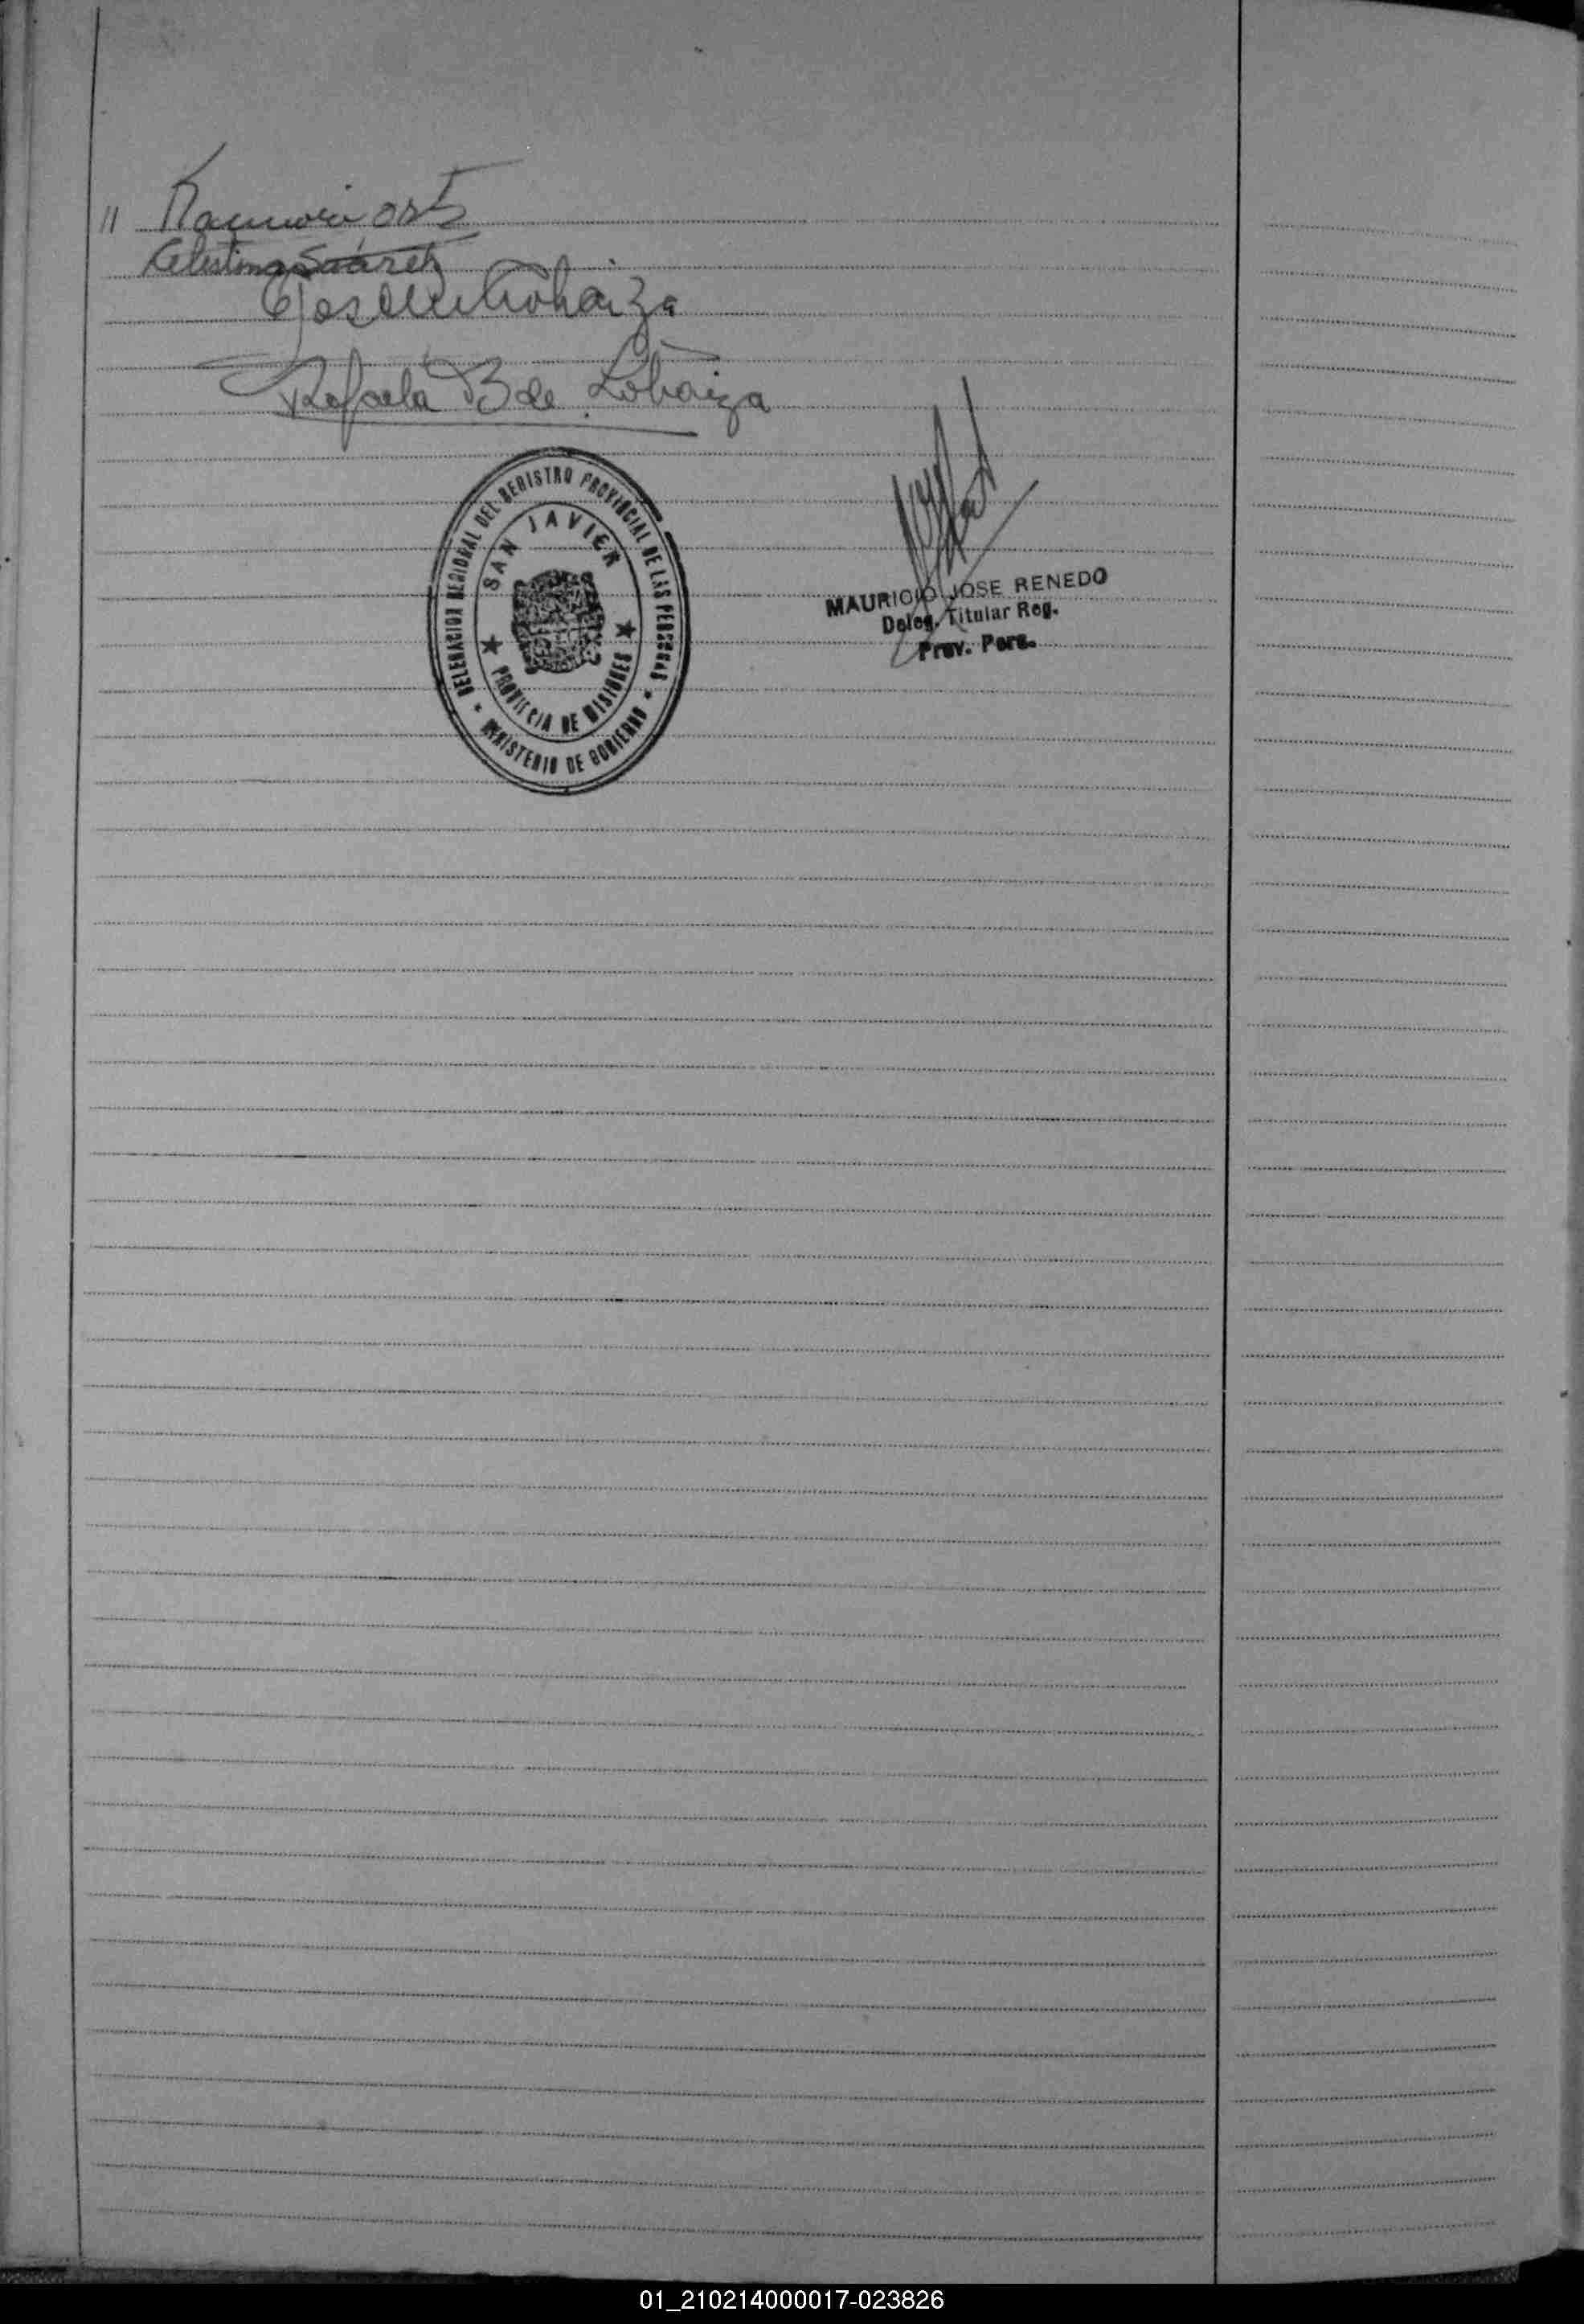 //
Celestina Suárez
Rafaela B de Lohaiza
DELEGACION REGIONAL DEL REGISTRO PROVINCIAL DE LAS PERSONAS
SAN JAVIER
PROVINCIA DE MISIONES
MINISTERIO DE GOBIERNO
MAURICIO JOSE RENEDO
Deleg. Titular Reg.
Prov. Pers.
01_210214000017-023826